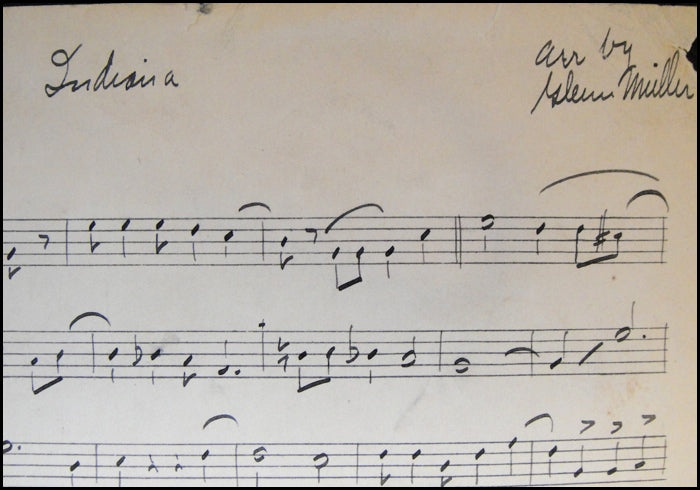 Indiana
arr by
Glenn Miller